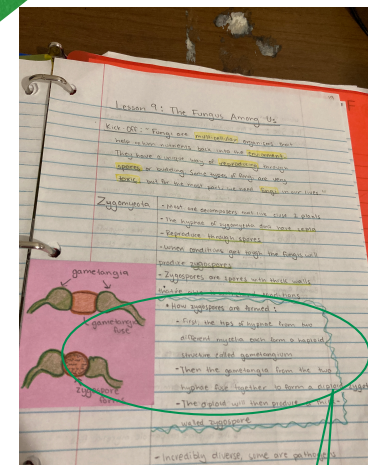 Lesson 9: The Fungus Among Us
Kick-Off: "Fungi are multicellular organisms that
help return nutrients back into the environment.
They have a unique way of reproducing through
spores or budding. Some types of fungi are very
toxic, but for the most part, we need fungi in our lives."
Zygomycota - Most are decomposers that live close 2 plants
- The hyphae of zygomycota don't have septa
- Reproduce through spores
- When conditions get tough the fungi will
produce zygospores
- Zygospores are spores with thick walls
conditions
* How zygospores are formed:
- First, the tips of hyphae from two
different mycelia each form a haploid
structure called gametangium
- Then the gametangia from the two
hyphae fuse together to form a diploid
- The diploid will then produce a
walled zygospore
- Incredibly diverse, some are pathogens
gametangia
gametangia
fuse
zygospore
forms